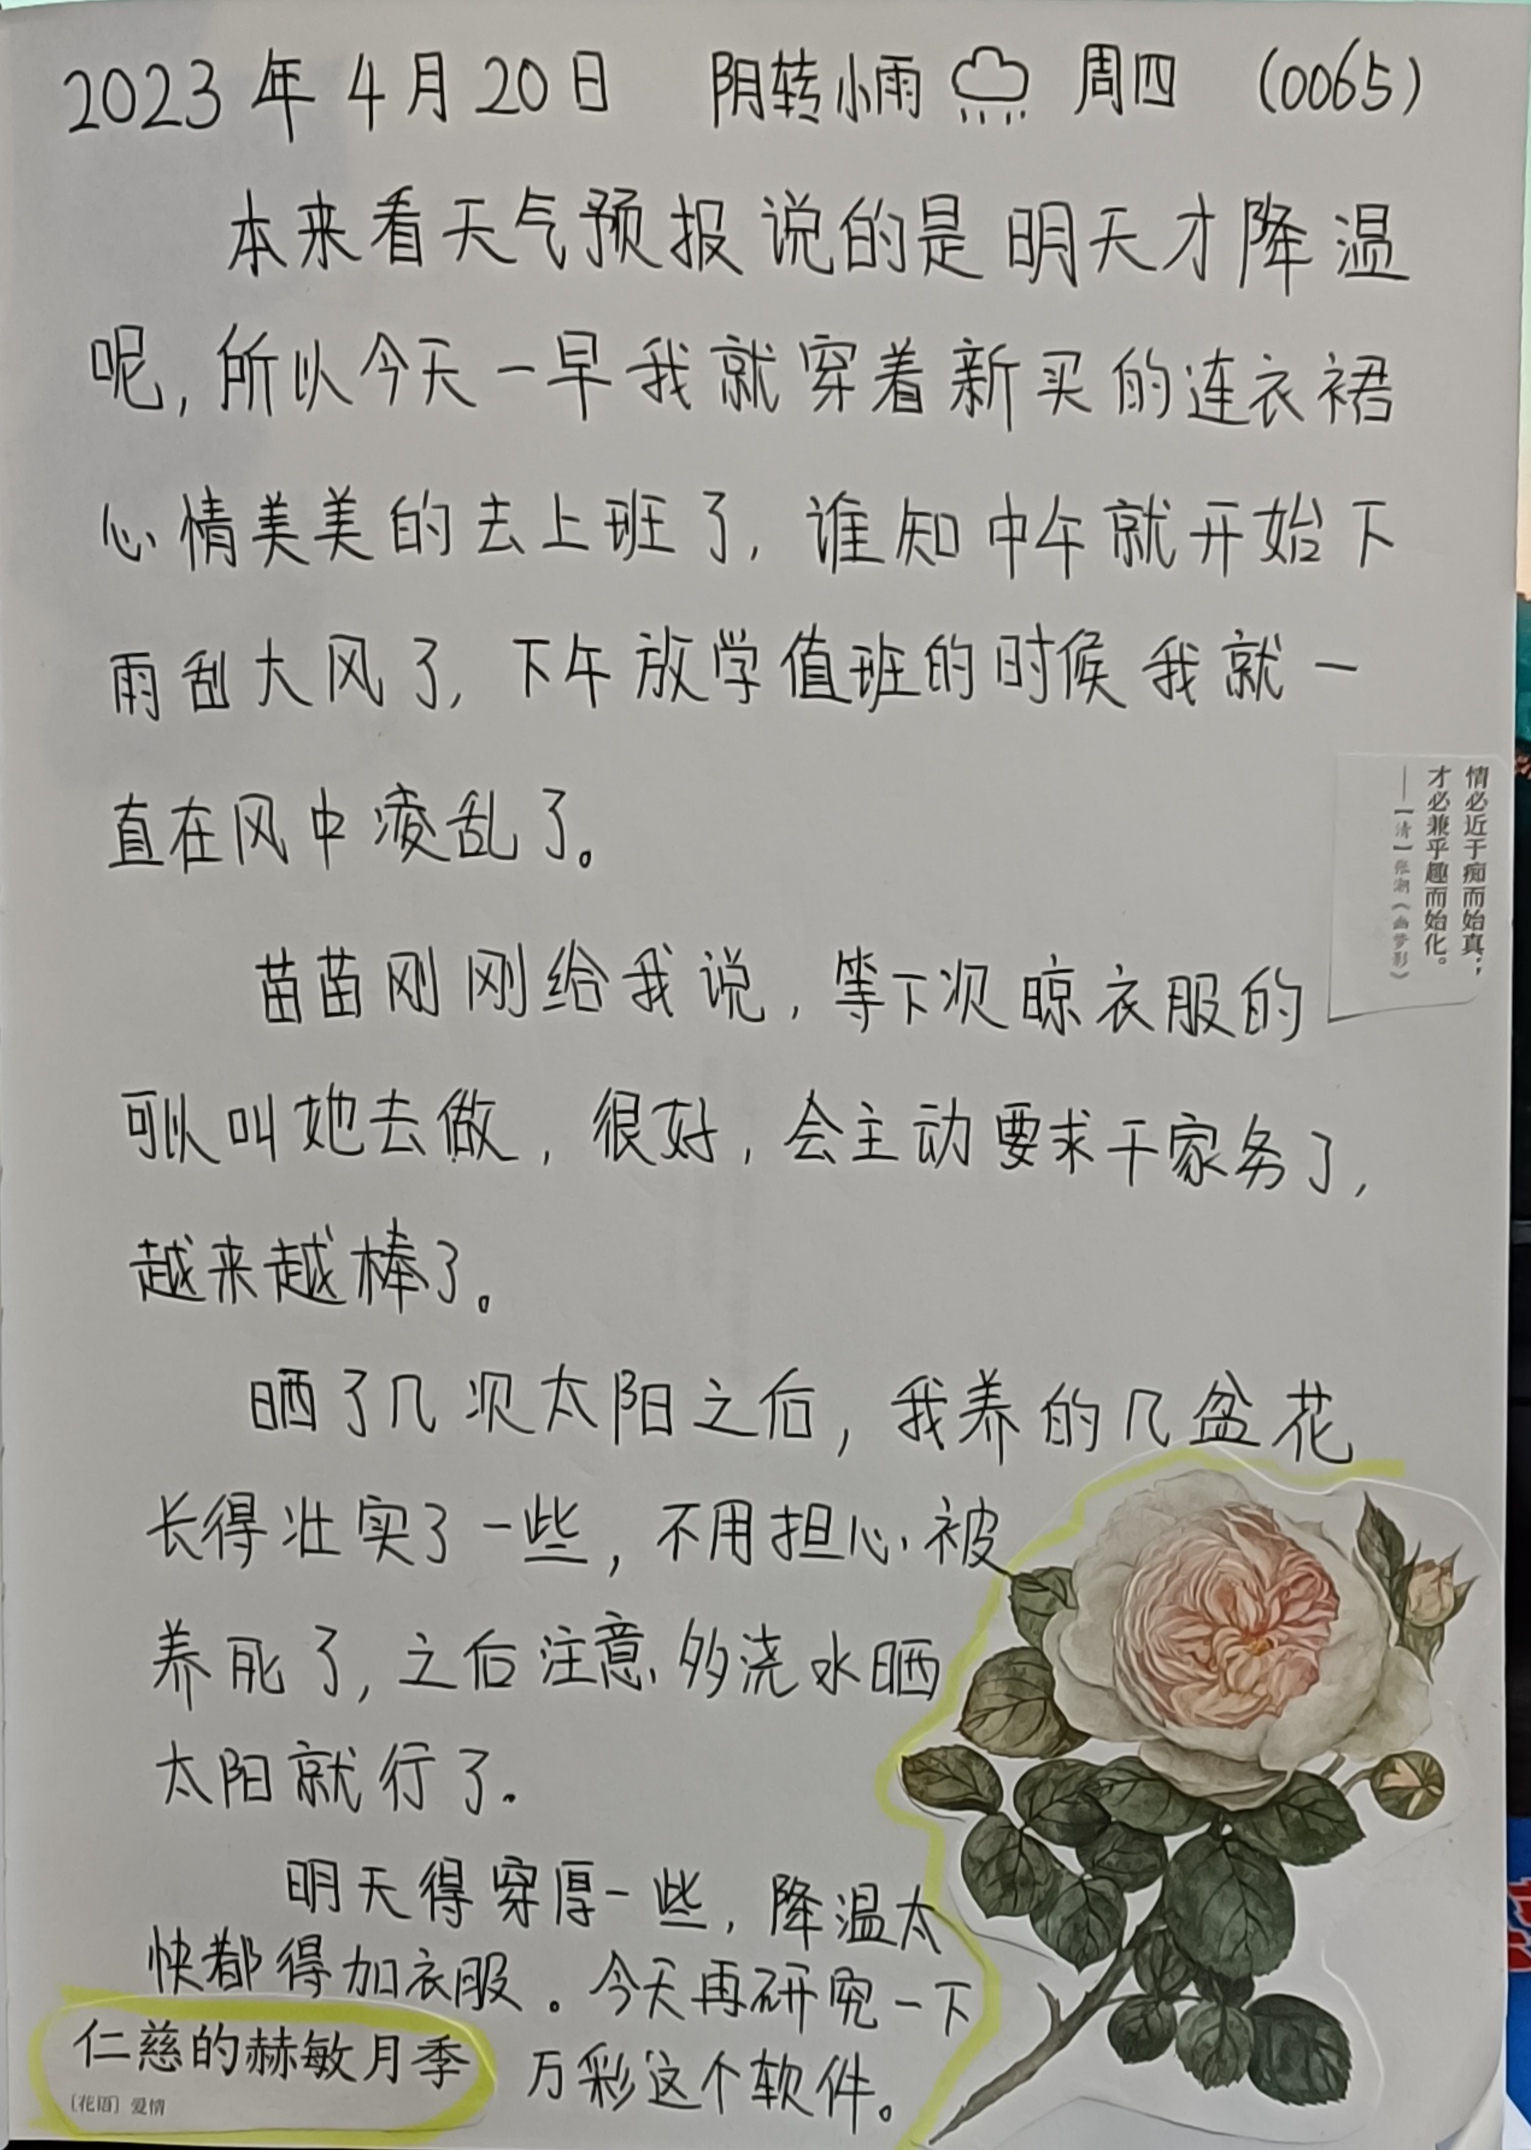 2023年4月20日 阴转小雨 周四 (0065)
本来看天气预报说的是明天才降温
呢,所以今天一早我就穿着新买的连衣裙
心情美美的去上班了,谁知中午就开始下
雨刮大风了,下午放学值班的时候我就一
直在风中凌乱了。
情必近于痴而始真;
才必兼乎趣而始化。
——【清】张潮《幽梦影》
苗苗刚刚给我说,等下次晾衣服的
可以叫她去做,很好,会主动要求干家务了,
越来越棒了。
晒了几次太阳之后,我养的几盆花
长得壮实了一些,不用担心被
养死了,之后注意多浇水晒
太阳就行了.
明天得穿厚一些,降温太
快都得加衣服。今天再研究一下
万彩这个软件。
仁慈的赫敏月季
[花语] 爱情